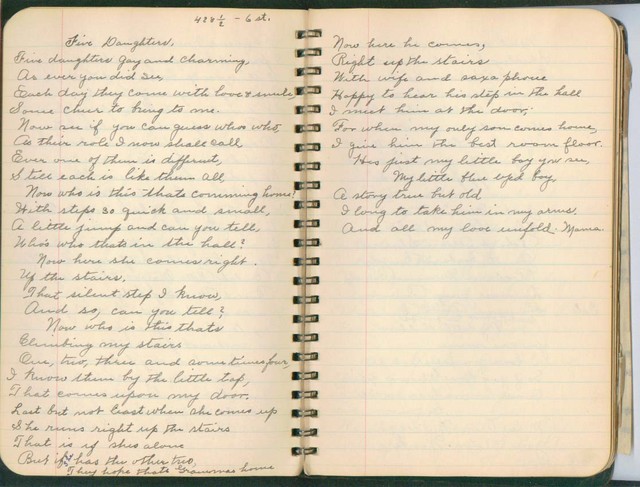 428 1/2 - 6 st.
Five Daughters,
Five daughters gay and charming,
As ever you did see,
Each day they come with love & smile,
Some cheer to bring to me.
Now see if you can guess whos who,
As their role I now shall call
Ever one of them is different,
Still each is like them all,
Now who is this thats comming home?
With steps so quick and small,
A little jump and can you tell,
Who's who thats in the hall?
Now here she comes right.
Up the stairs.
That silent step I know,
And so, can you tell?
Now who is this thats
Climbing my stairs
One, two, three and sometimes four,
I know them by the little tap,
That comes upon my door.
Last but not least when she comes up
She runs right up the stairs
That is if shes alone
But if has the other two,
They hope thats Grammas home
Now here he comes,
Right up the stairs
With wife and saxaphone
Happy to hear his step in the hall
I meet him at the door,
For when my only son comes home,
I give him the best room floor.
Hes just my little boy you see,
My little blue eyed boy,
A story true but old
I long to take him in my arms.
And all my love unfold. Mama